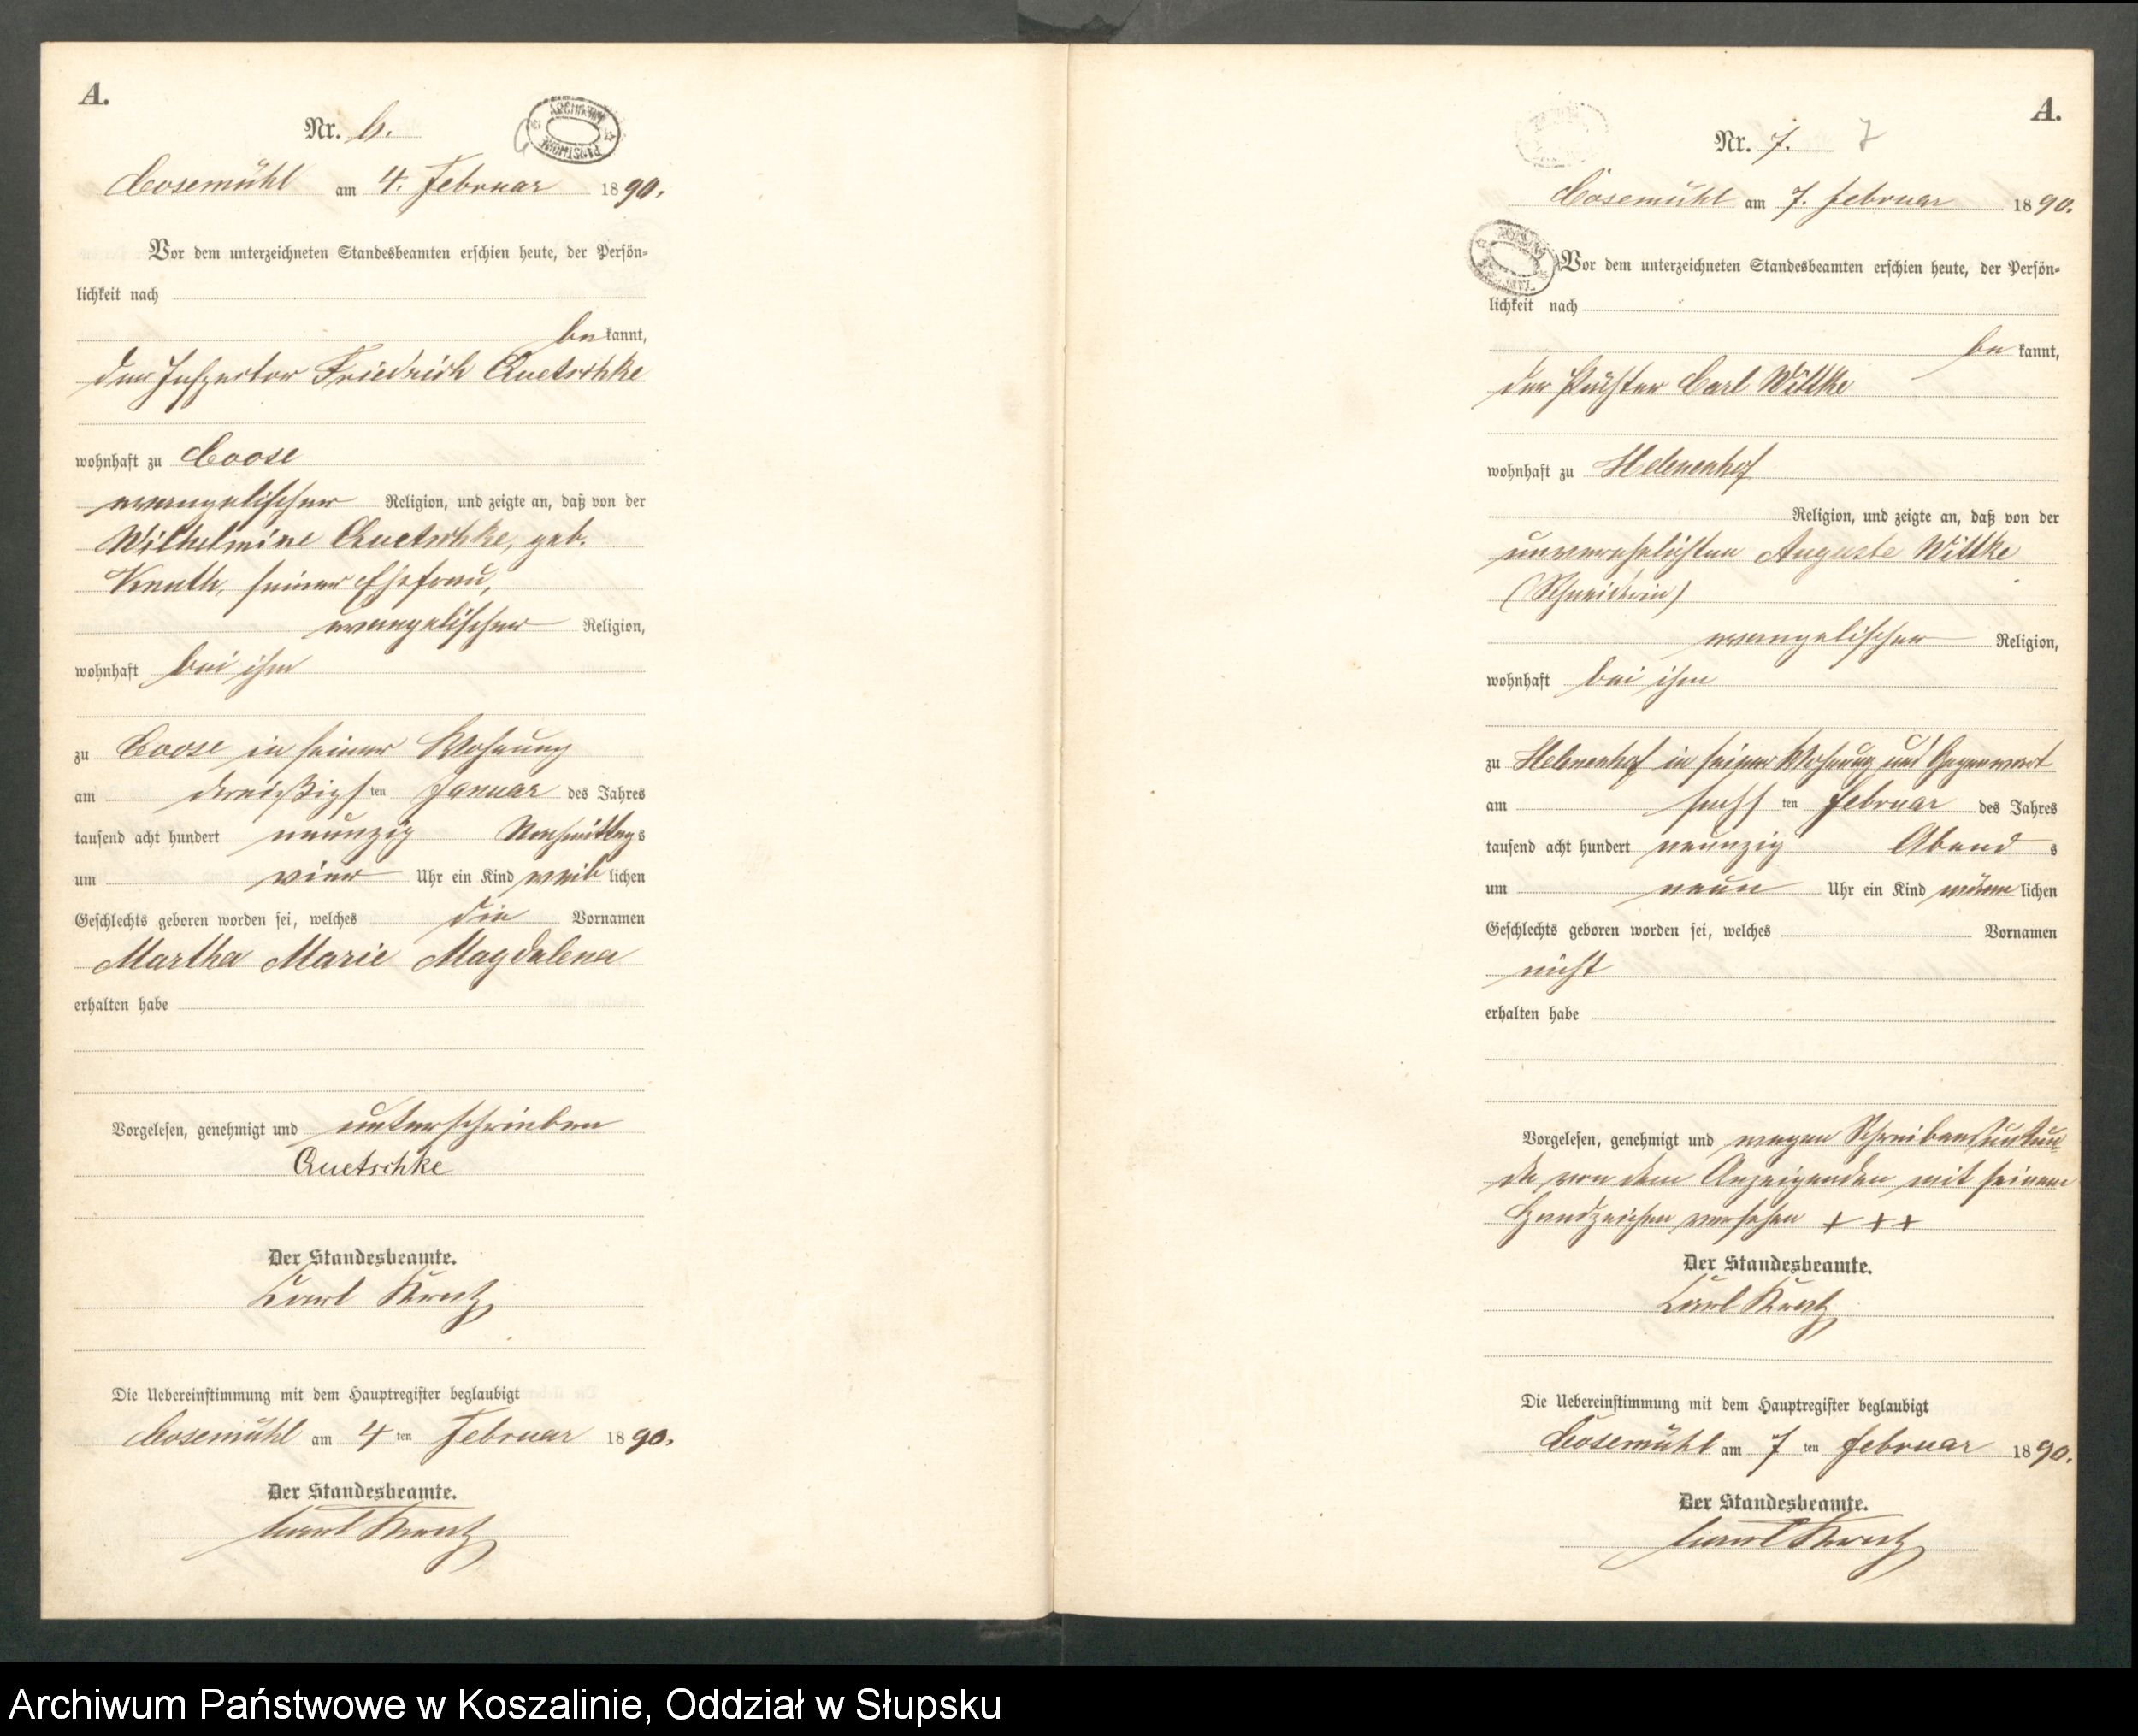 A.
Nr. 6.
6
ARCHIWUM PAŃSTWOWE
Cosemühl am 4. Februar 1890.
Vor dem unterzeichneten Standesbeamten erschien heute, der Persön-
lichkeit nach
be kannt,
der Inspector Friedrich Quetschke
wohnhaft zu Coose
evangelischer Religion, und zeigte an, daß von der
Wilhelmine Quetschke, geb.
Knuth, seiner Ehefrau,
evangelischer Religion,
wohnhaft bei ihm
zu Coose in seiner Wohnung
am dreißigsten Januar des Jahres
tausend acht hundert neunzig Nachmittags
um vier Uhr ein Kind weiblichen
Geschlechts geboren worden sei, welches die Vornamen
Martha Marie Magdalena
erhalten habe
Vorgelesen, genehmigt und unterschrieben
Quetschke
Der Standesbeamte.
Carl
Die Uebereinstimmung mit dem Hauptregister beglaubigt
Cosemühl am 4ten Februar 1890.
Der Standesbeamte.
Carl
A.
Nr. 7. 7
Cosemühl am 7. Februar 1890.
Vor dem unterzeichneten Standesbeamten erschien heute, der Persön-
lichkeit nach
be kannt,
der Carl Wittke
wohnhaft zu Helenenhof
Religion, und zeigte an, daß von der
unverehelichten Auguste Wittke
(Schneiderin)
evangelischer Religion,
wohnhaft bei ihm
zu Helenenhof in seiner Wohnung und Gegenwart
am sechsten Februar des Jahres
tausend acht hundert neunzig Abends
um neun Uhr ein Kind männlichen
Geschlechts geboren worden sei, welches Vornamen
nicht
erhalten habe
Vorgelesen, genehmigt und wegen Schreibensunkun-
de von dem Anzeigenden mit seinem
Handzeichen versehen + + +
Der Standesbeamte.
Carl
Die Uebereinstimmung mit dem Hauptregister beglaubigt
Cosemühl am 7ten Februar 1890.
Der Standesbeamte.
Carl
Archiwum Państwowe w Koszalinie, Oddział w Słupsku